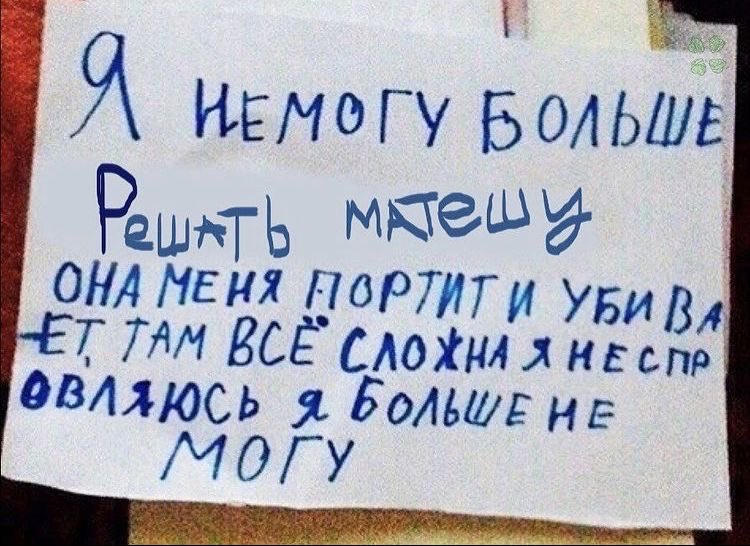 Я НЕМОГУ БОЛЬШЕ
Решать матешу
ОНА МЕНЯ ПОРТИТ И УБИВА
ЕТ, ТАМ ВСЁ СЛОЖНА Я НЕСПР
ОВЛЯЮСЬ Я БОЛЬШЕ НЕ
МОГУ